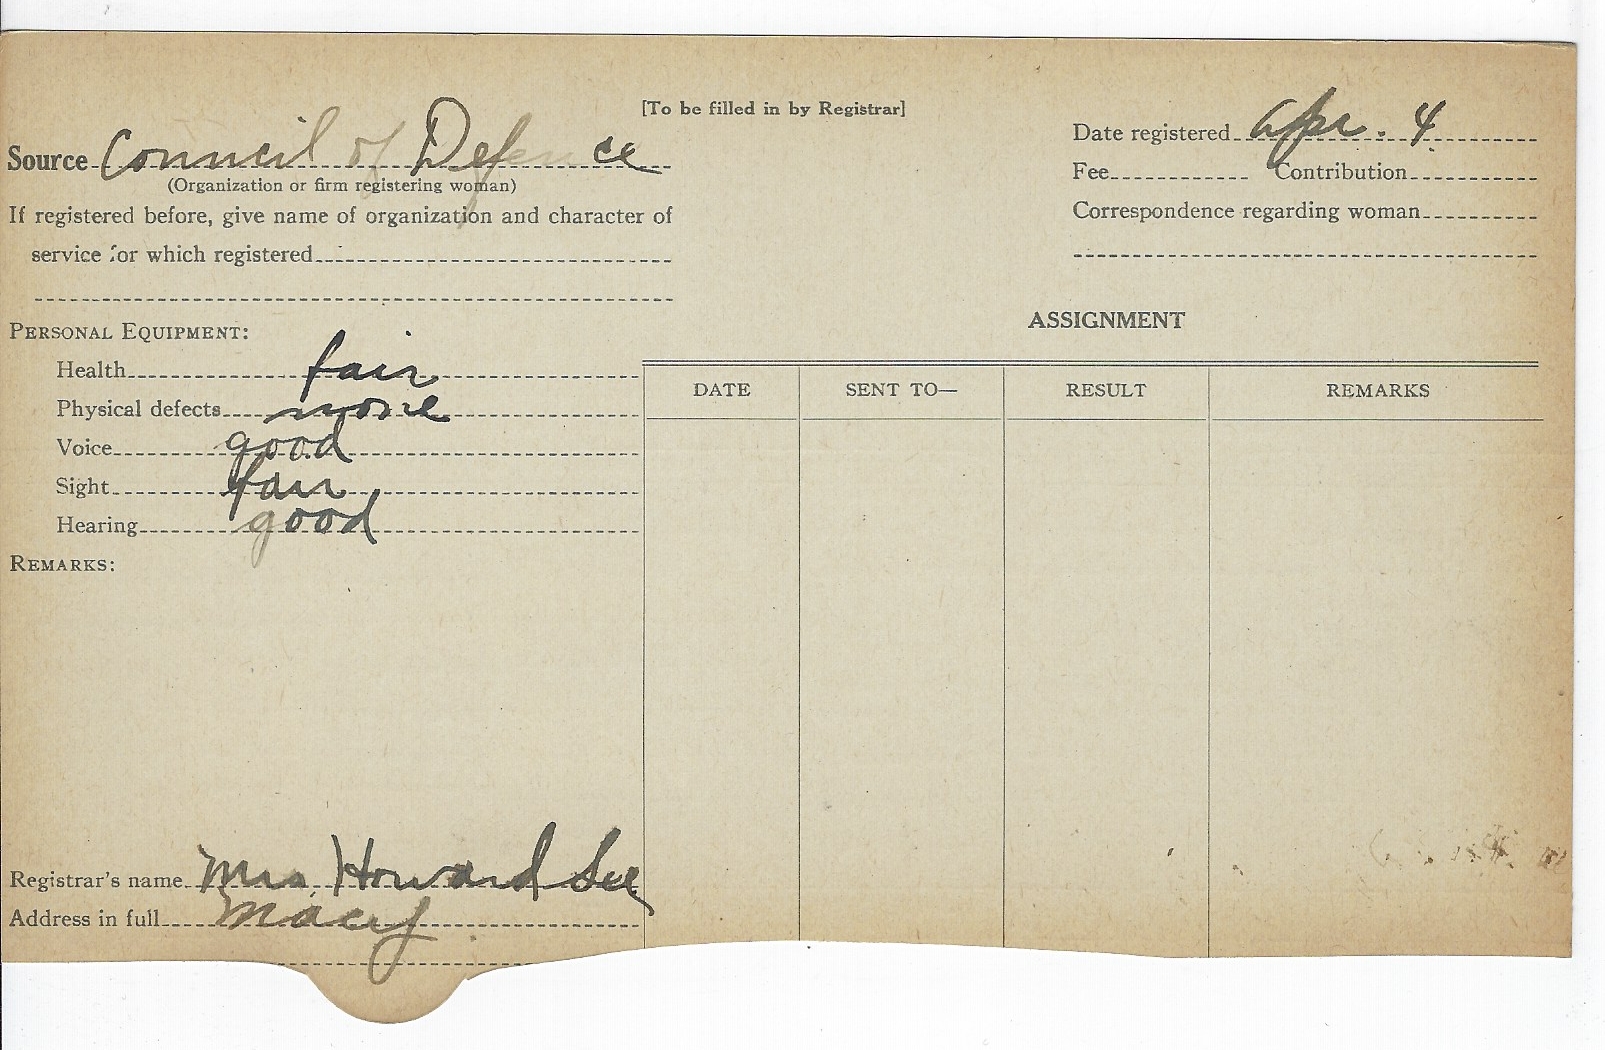 [To be filled in by Registrar]
Source Council of Defence
(Organization or firm registering woman)
If registered before, give name of organization and character of
service for which registered
Date registered Apr. 4
Fee Contribution
Correspondence regarding woman
PERSONAL EQUIPMENT:
Health fair
Physical defects none
Voice good
Sight fair
Hearing good
REMARKS:
ASSIGNMENT
DATE SENT TO— RESULT REMARKS
Registrar's name Mrs Howard Lee
Address in full Macy